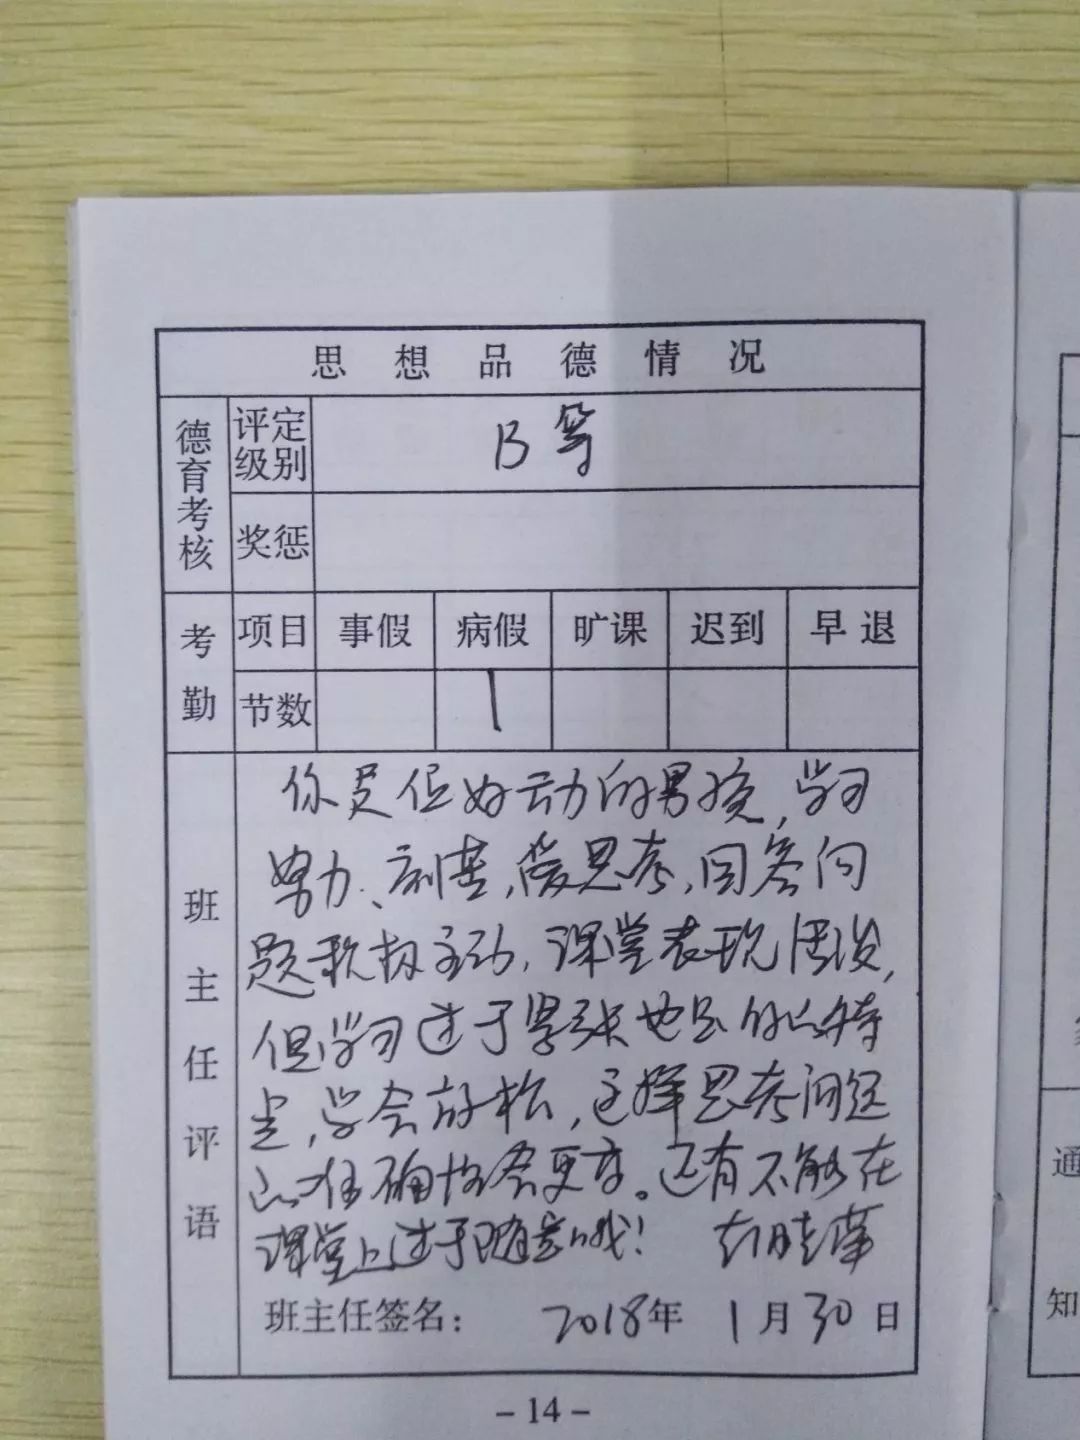 思想品德情况
德育考核
评定级别
B等
奖惩
考勤
项目 事假 病假 旷课 迟到 早退
节数 1
班主任评语
你是位好动的男孩,学习
努力、刻苦,爱思考,回答问
题积极主动,课堂表现活泼,
但学习过于紧张也是你的特
点,学会放松,这样思考问题
的准确性会更高。还有不能在
课堂上过于随意哦!
班主任签名: 2018年 1月30日
-14-
通
知